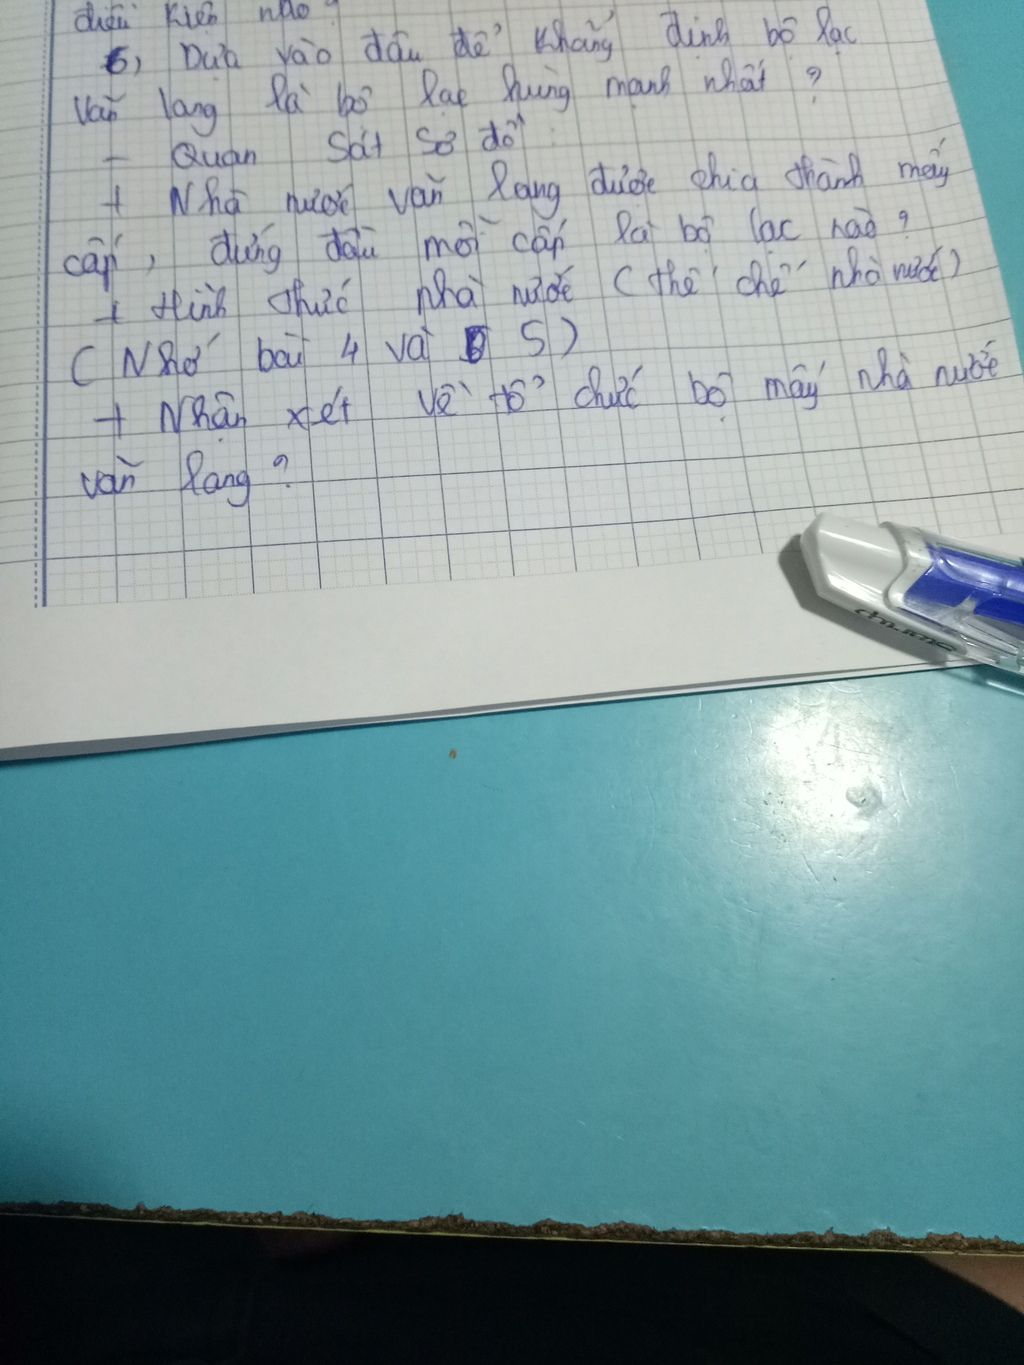 điều kiện nào?
6, Dựa vào đâu để khẳng định bộ lạc
Văn lang là bộ lạc hùng mạnh nhất ?
- Quan sát sơ đồ :
+ Nhà nước văn lang được chia thành mấy
cấp, đứng đầu mỗi cấp là bộ lạc nào ?
+ Hình thức nhà nước (thể chế nhà nước)
(Nhớ bài 4 và 5)
+ Nhận xét về tổ chức bộ mấy nhà nước
văn lang ?